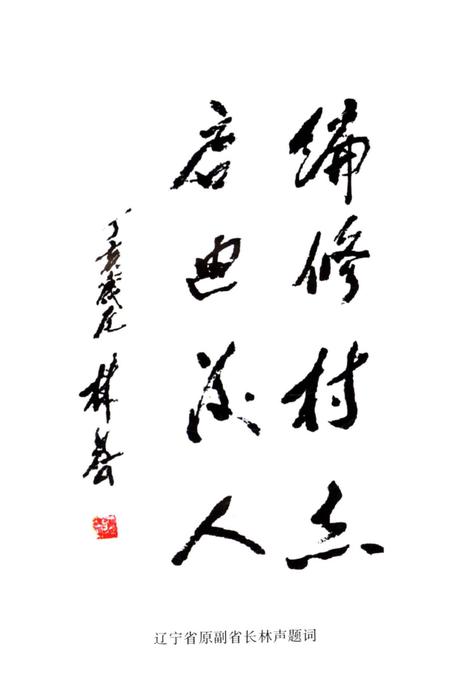 编修村志
启迪后人
丁亥岁尾 林声
辽宁省原副省长林声题词